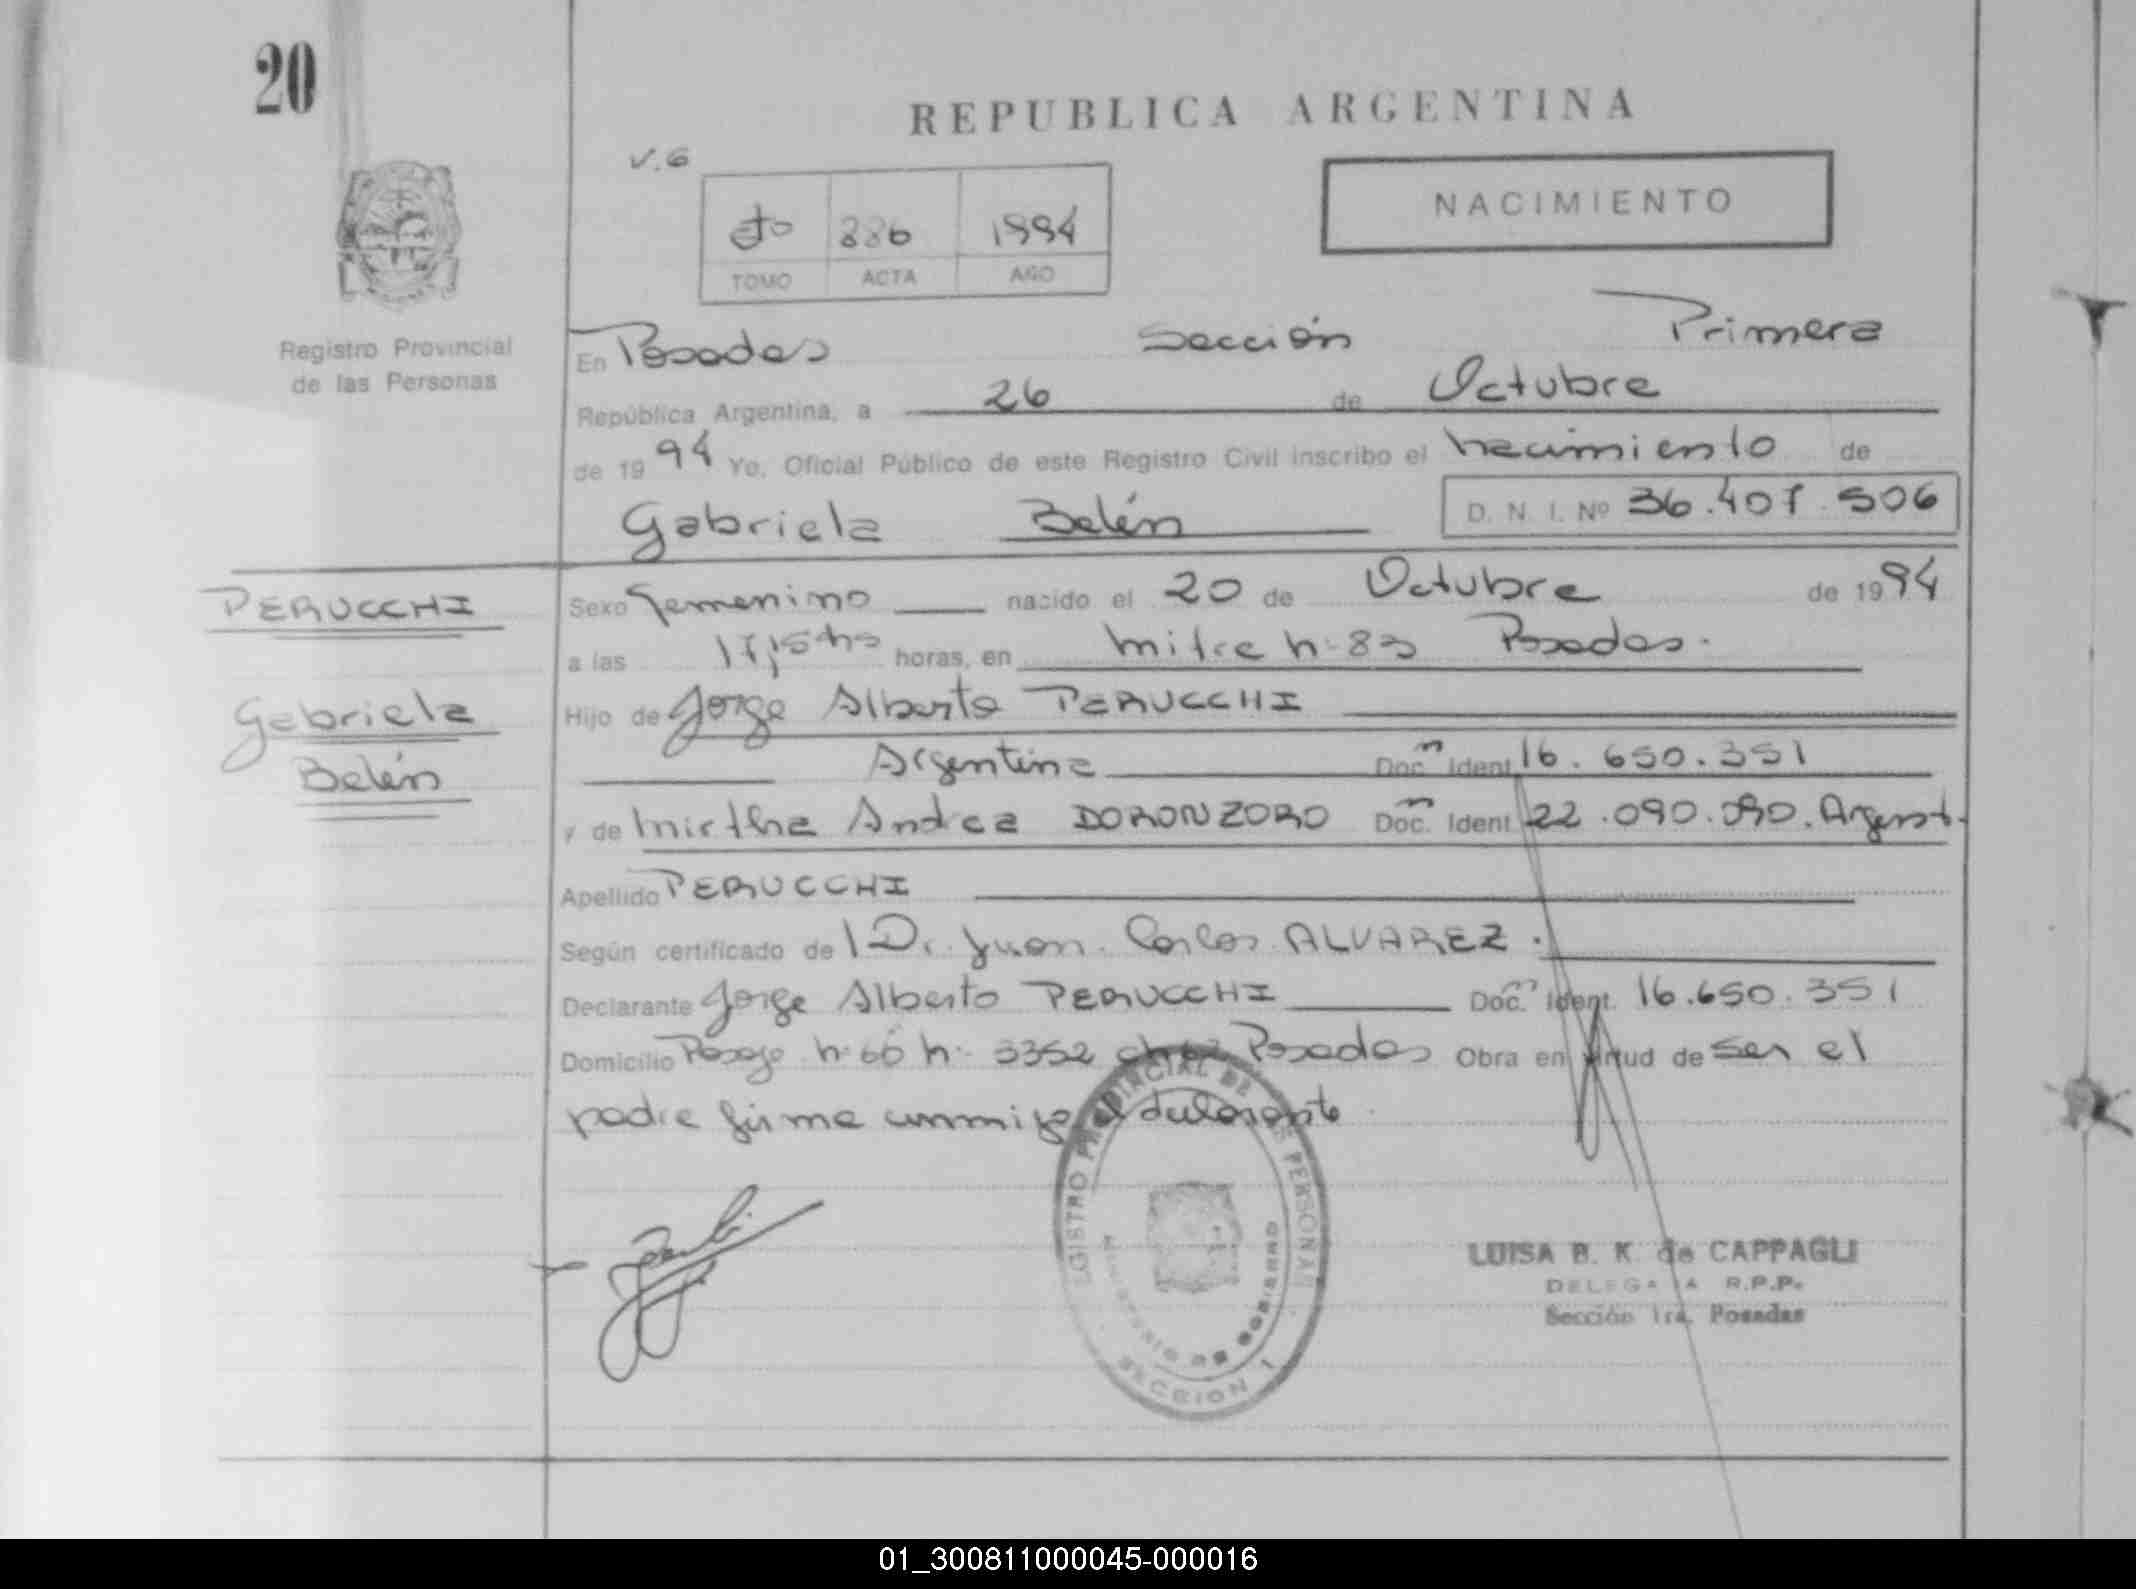 20
REPUBLICA ARGENTINA
V.6
886 1994
TOMO ACTA AÑO
NACIMIENTO
Registro Provincial
de las Personas
En Posadas Sección Primera
República Argentina, a 26 de Octubre
de 1994 Yo, Oficial Público de este Registro Civil inscribo el nacimiento de
Gabriela Belén D. N. I. Nº 36.407.506
PERUCCHI
Gabriela
Belén
Sexo Femenino nacido el 20 de Octubre de 1994
a las 17,15 hs horas, en Mitre nº 83 Posadas.
Hijo de Jorge Alberto PERUCCHI
Argentina Doc. Ident. 16.650.351
y de Mirtha Andrea DORONZORO Doc. Ident. 22.090.090. Argent.
Apellido PERUCCHI
Según certificado de Dr. Juan Carlos ALVAREZ.
Declarante Jorge Alberto PERUCCHI Doc. Ident. 16.650.351
Domicilio Pasaje nº 66 nº 3352 Posadas Obra en virtud de ser el
padre firma conmigo el declarante.
REGISTRO PROVINCIAL DE LAS PERSONAS
MINISTERIO DE GOBIERNO
SECCION 1
LUISA B. K. de CAPPAGLI
DELEGADA R.P.P.
Sección 1ra. Posadas
01_300811000045-000016